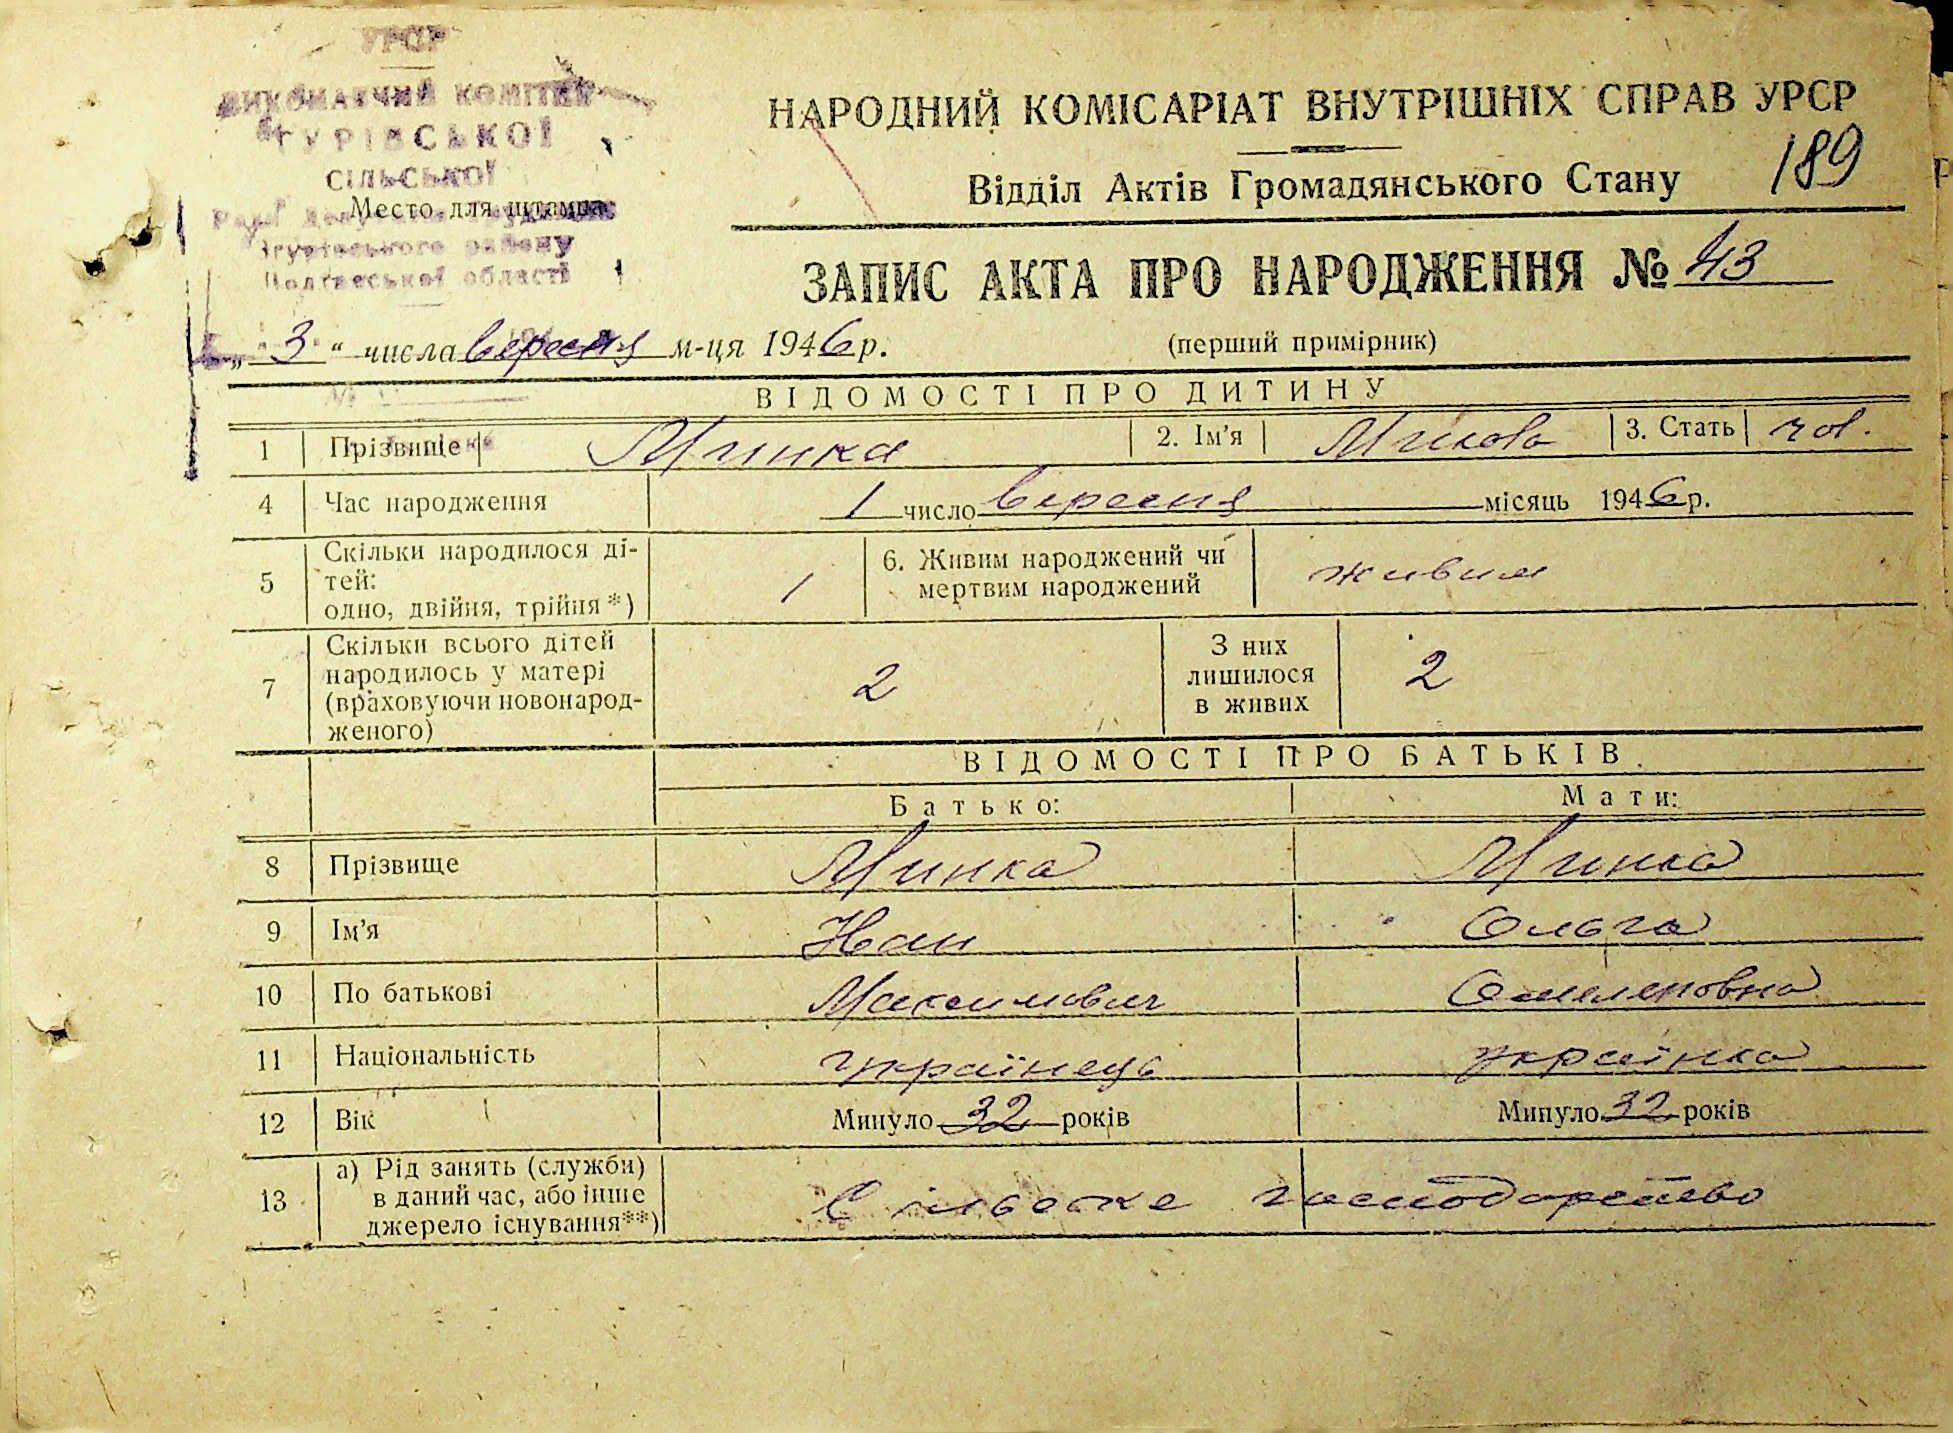 УРСР
ВИКОНАВЧИЙ КОМІТЕТ
ТУРІВСЬКОЇ
СІЛЬСЬКОЇ
Место для штампа
району
Полтавської області
НАРОДНИЙ КОМІСАРІАТ ВНУТРІШНІХ СПРАВ УРСР
Відділ Актів Громадянського Стану 189
ЗАПИС АКТА ПРО НАРОДЖЕННЯ № 43
„ 3 “ числа вересня м-ця 1946 р. (перший примірник)
ВІДОМОСТІ ПРО ДИТИНУ
1 Прізвище Минка 2. Ім'я Микола 3. Стать чол.
4 Час народження 1 число вересня місяць 1946 р.
5 Скільки народилося ді-
тей:
одно, двійня, трійня*) 1 6. Живим народжений чи
мертвим народжений живим
7 Скільки всього дітей
народилось у матері
(враховуючи новонарод-
женого) 2 З них
лишилося
в живих 2
ВІДОМОСТІ ПРО БАТЬКІВ
Батько: Мати:
8 Прізвище Минка Минка
9 Ім'я Іван Ольга
10 По батькові Максимович Омеляновна
11 Національність українець українка
12 Вік Минуло 32 років Минуло 32 років
13 а) Рід занять (служби)
в даний час, або інше
джерело існування**) Сільське господарство